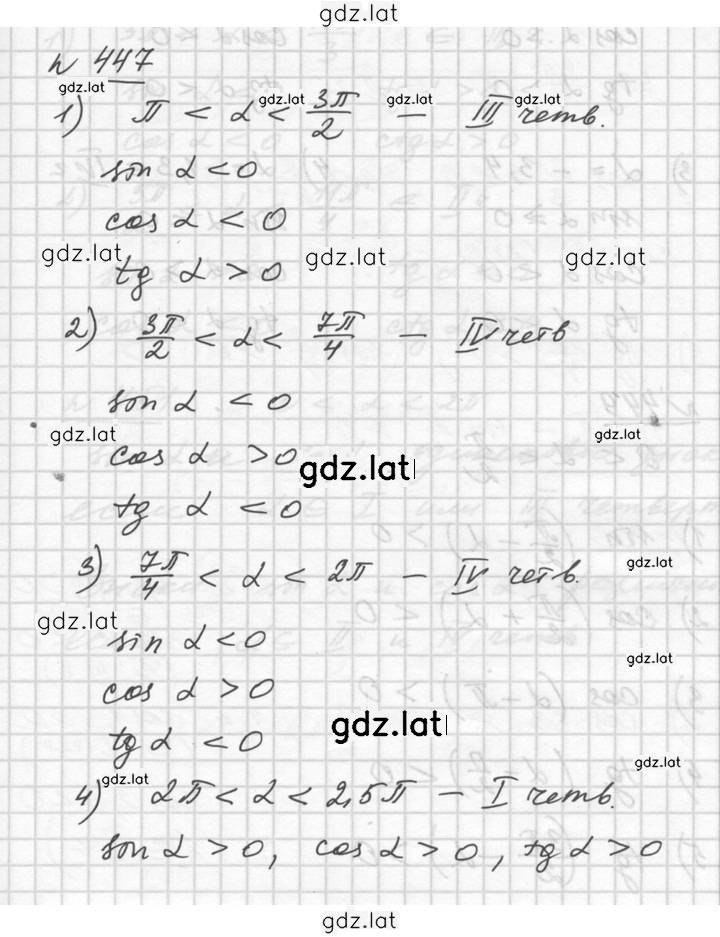 gdz.lat
N 447
gdz.lat
1) π < α < 3π/2 — III четв.
gdz.lat gdz.lat gdz.lat
sin α < 0
cos α < 0
gdz.lat gdz.lat gdz.lat
tg α > 0
2) 3π/2 < α < 7π/4 — IV четв
sin α < 0
gdz.lat gdz.lat
cos α > 0
gdz.lat
tg α < 0
3) 7π/4 < α < 2π — IV четв.
gdz.lat
gdz.lat
sin α < 0
gdz.lat
cos α > 0
gdz.lat
tg α < 0
gdz.lat gdz.lat
4) 2π < α < 2,5π — I четв.
sin α > 0, cos α > 0, tg α > 0
gdz.lat